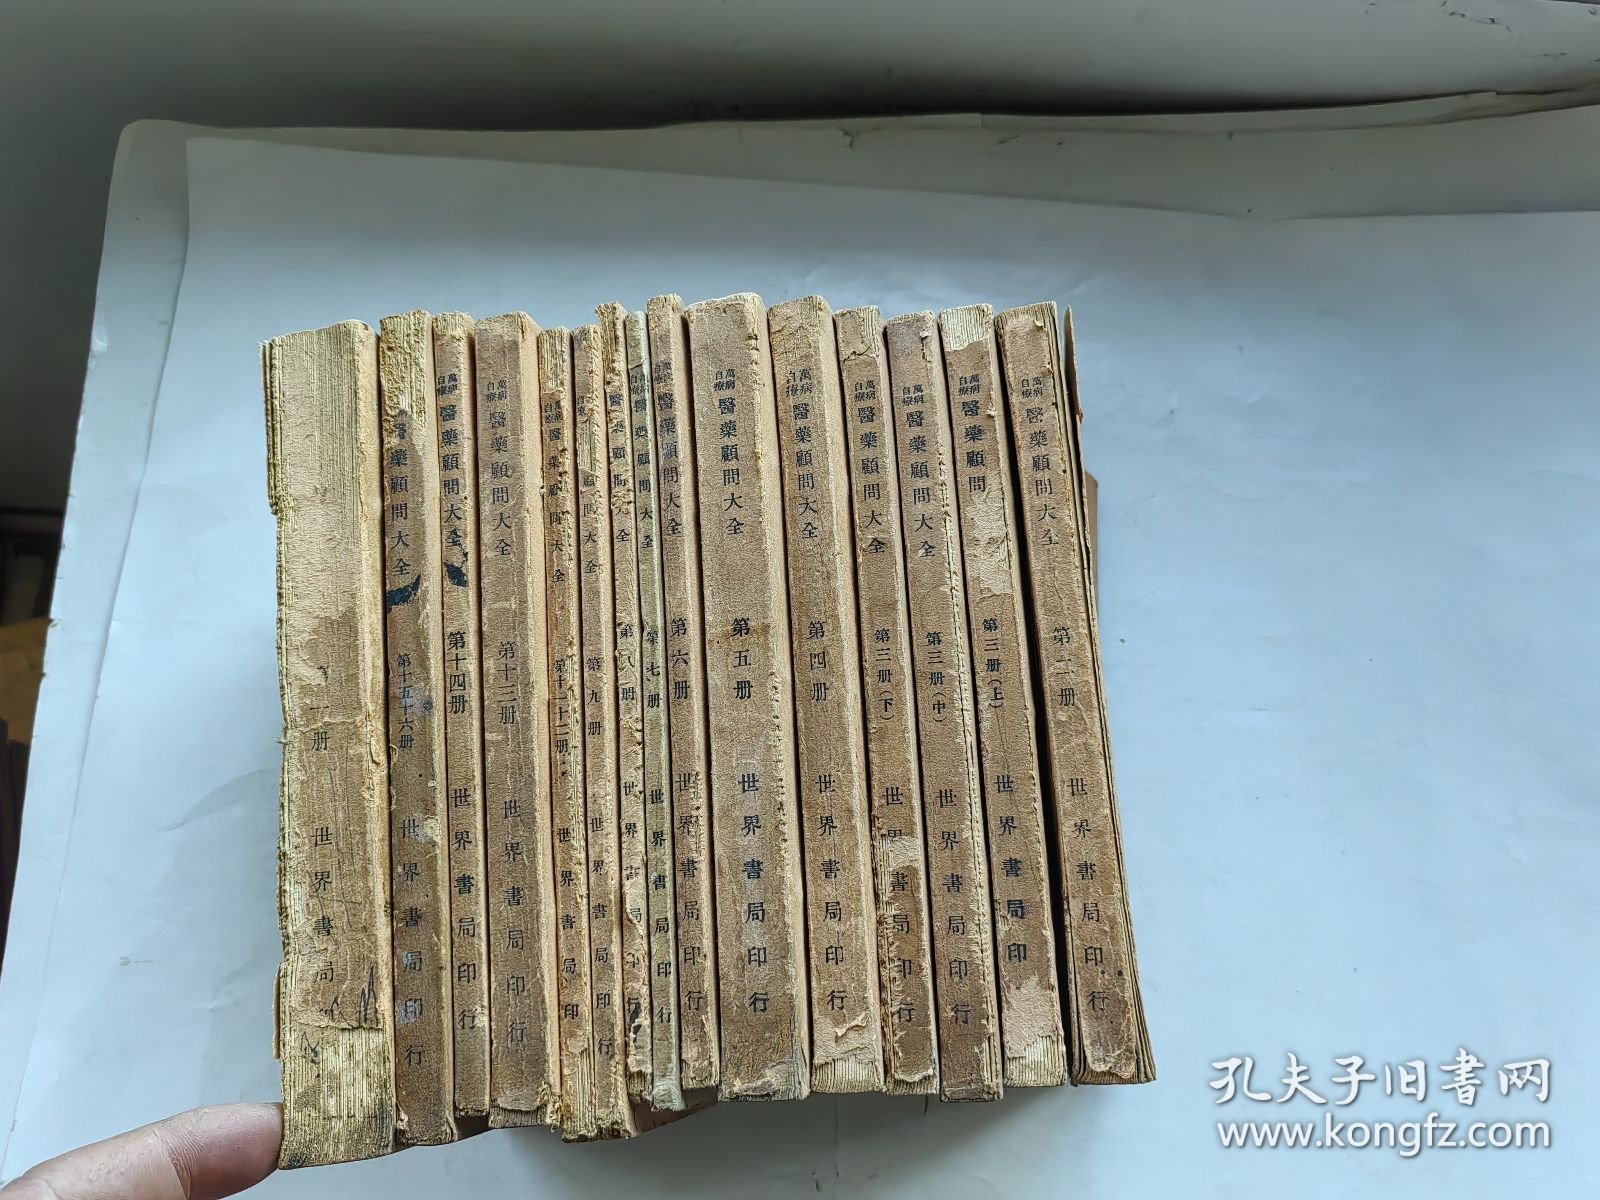 册 世界書局
醫藥顧問大全 第十五十六册 世界書局印行
萬病自療 醫藥顧問大全 第十四册 世界書局印行
萬病自療 醫藥顧問大全 第十三册 世界書局印行
萬病自療 醫藥顧問大全 第十一十二册 世界書局印
自療 顧問大全 第九册 世界書局印行
醫藥顧問大全 第八册 世界書局印行
萬病自療 醫藥顧問大全 第七册 世界書局印行
醫藥顧問大全 第六册 世界書局印行
萬病自療 醫藥顧問大全 第五册 世界書局印行
萬病自療 醫藥顧問大全 第四册 世界書局印行
萬病自療 醫藥顧問大全 第三册(下) 世界書局印行
萬病自療 醫藥顧問大全 第三册(中) 世界書局印行
萬病自療 醫藥顧問 第三册(上) 世界書局印
萬病自療 醫藥顧問大全 第二册 世界書局印行
孔夫子旧書网
www.kongfz.com